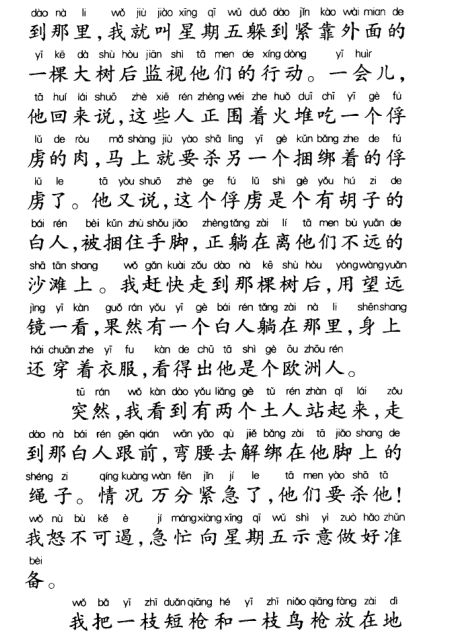 dào nà li wǒ jiù jiào xīng qī wǔ duǒ dào jǐn kào wài mian de
到那里，我就叫星期五躲到紧靠外面的
yī kē dà shù hòu jiān shì tā men de xíng dòng yī huìr
一棵大树后监视他们的行动。一会儿，
tā huí lái shuō zhè xiē rén zhèng wéi zhe huǒ duī chī yī gè fú
他回来说，这些人正围着火堆吃一个俘
lǔ de ròu mǎ shàng jiù yào shā lìng yī gè kǔn bǎng zhe de fú
虏的肉，马上就要杀另一个捆绑着的俘
lǔ le tā yòu shuō zhè ge fú lǔ shì gè yǒu hú zi de
虏了。他又说，这个俘虏是个有胡子的
bái rén bèi kǔn zhù shǒu jiǎo zhèng tǎng zài lí tā men bù yuǎn de
白人，被捆住手脚，正躺在离他们不远的
shā tān shang wǒ gǎn kuài zǒu dào nà kē shù hòu yòng wàng yuǎn
沙滩上。我赶快走到那棵树后，用望远
jìng yī kàn guǒ rán yǒu yī gè bái rén tǎng zài nà li shēn shang
镜一看，果然有一个白人躺在那里，身上
hái chuān zhe yī fu kàn de chū tā shì gè ōu zhōu rén
还穿着衣服，看得出他是个欧洲人。
tū rán wǒ kàn dào yǒu liǎng gè tǔ rén zhàn qǐ lái zǒu
突然，我看到有两个土人站起来，走
dào nà bái rén gēn qián wān yāo qù jiě bǎng zài tā jiǎo shang de
到那白人跟前，弯腰去解绑在他脚上的
shéng zi qíng kuàng wàn fēn jǐn jí le tā men yào shā tā
绳子。情况万分紧急了，他们要杀他！
wǒ nù bù kě è jí máng xiàng xīng qī wǔ shì yì zuò hǎo zhǔn
我怒不可遏，急忙向星期五示意做好准
bèi
备。
wǒ bǎ yī zhī duǎn qiāng hé yī zhī niǎo qiāng fàng zài dì
我把一枝短枪和一枝鸟枪放在地